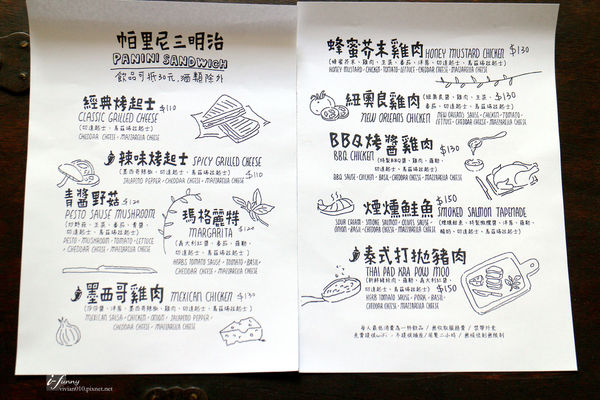 帕里尼三明治
PANINI SANDWICH
飲品可抵30元,酒類除外
經典烤起士 $110
CLASSIC GRILLED CHEESE
(切達起士、馬茲瑞拉起士)
CHEDDAR CHEESE、MAZZARELLA CHEESE
辣味烤起士 SPICY GRILLED CHEESE
(墨西哥辣椒、切達起士、馬茲瑞拉起士) $110
JALAPENO PEPPER、CHEDDAR CHEESE、MAZZARELLA CHEESE
青醬野菇 $120
PESTO SAUSE MUSHROOM
(炒野菇、生菜、番茄、青醬、
切達起士、馬茲瑞拉起士)
PESTO・MUSHROOM・TOMATO・LETTUCE
・CHEDDAR CHEESE・MAZZARELLA CHEESE
瑪格麗特
MARGARITA $120
(義大利紅醬、番茄、羅勒、
切達起士、馬茲瑞拉起士)
HERBS TOMATO SAUSE・TOMATO・BASIL・
CHEDDAR CHEESE・MAZZARELLA CHEESE
墨西哥雞肉 MEXICAN CHICKEN $130
(莎莎醬、洋蔥、墨西哥辣椒、雞肉、切達起士、馬茲瑞拉起士)
MEXICAN SALSA・CHICKEN・ONION・JALAPENO PEPPER・
CHEDDAR CHEESE・MAZZARELLA CHEESE
蜂蜜芥末雞肉 HONEY MUSTARD CHICKEN $130
(蜂蜜芥末、雞肉、生菜、番茄、洋蔥、切達起士、馬茲瑞拉起士)
HONEY MUSTARD・CHICKEN・TOMATO・LETTUCE・CHEDDAR CHEESE・MAZZARELLA CHEESE
紐奧良雞肉 (紐奧良醬、雞肉、生菜、 $130
番茄、切達起士、馬茲瑞拉起士)
NEW ORLEANS CHICKEN NEW ORLEANS SAUSE・CHICKEN・TOMATO・
LETTUCE・CHEDDAR CHEESE・MAZZARELLA CHEESE
BBQ烤醬雞肉 $130
BBQ CHICKEN (特製BBQ醬、雞肉、羅勒、
切達起士、馬茲瑞拉起士)
BBQ SAUSE・CHICKEN・BASIL・CHEDDAR CHEESE・MAZZARELLA CHEESE
煙燻鮭魚 $150
SMOKED SALMON TAPENADE
SOUR CREAM・SMOKE SALMOT・OLIVES SAUSE・
ONION・BASIL・CHEDDAR CHEESE・MAZZARELLA CHEESE
泰式打拋豬肉
THAI PAD KRA POW MOO
切達起士、馬茲瑞拉起士) $150
HERB TOMATO SAUSE・PORK・BASIL・
CHEDDAR CHEESE・MAZZARELLA CHEESE
每人最低消費為一杯飲品 / 無收取服務費 / 禁帶外食
i-funny
vivian010.pixnet.net